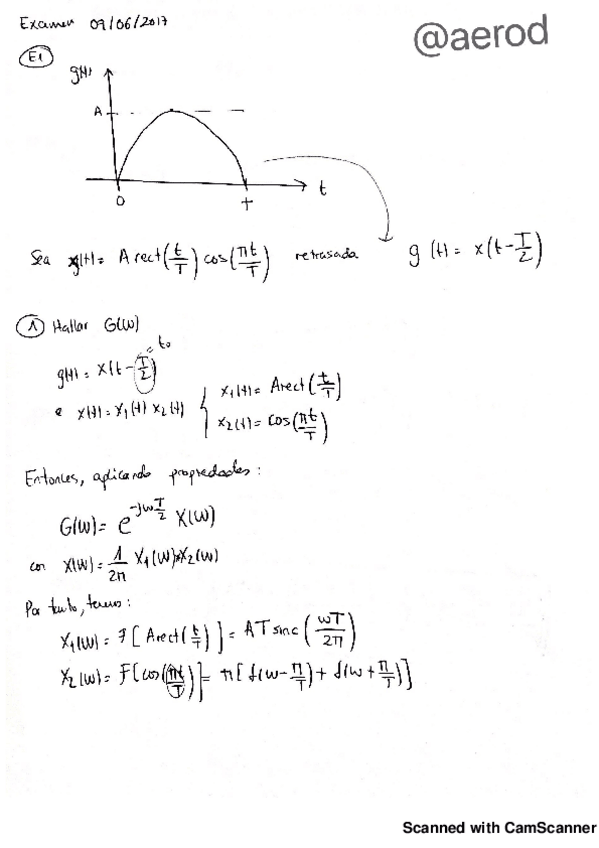 Examen 09/06/2017
@aerod
E1
g(t)
A
0
T
t
Sea x(t)= A rect(t/T) cos(πt/T) retrasada g(t)= x(t-T/2)
1 Hallar G(W)
g(t)= x(t-T/2) = t₀
e x(t)= x₁(t) x₂(t) { x₁(t)= A rect(t/T)
x₂(t)= cos(πt/T)
Entonces, aplicando propiedades:
G(W)= e^(-jωT/2) X(W)
con X(W)= 1/2π X₁(W)*X₂(W)
Por tanto, tenemos:
X₁(W)= F[A rect(t/T)]= AT sinc(ωT/2π)
X₂(W)= F[cos(πt/T)]= π[δ(ω-π/T)+δ(ω+π/T)]
Scanned with CamScanner